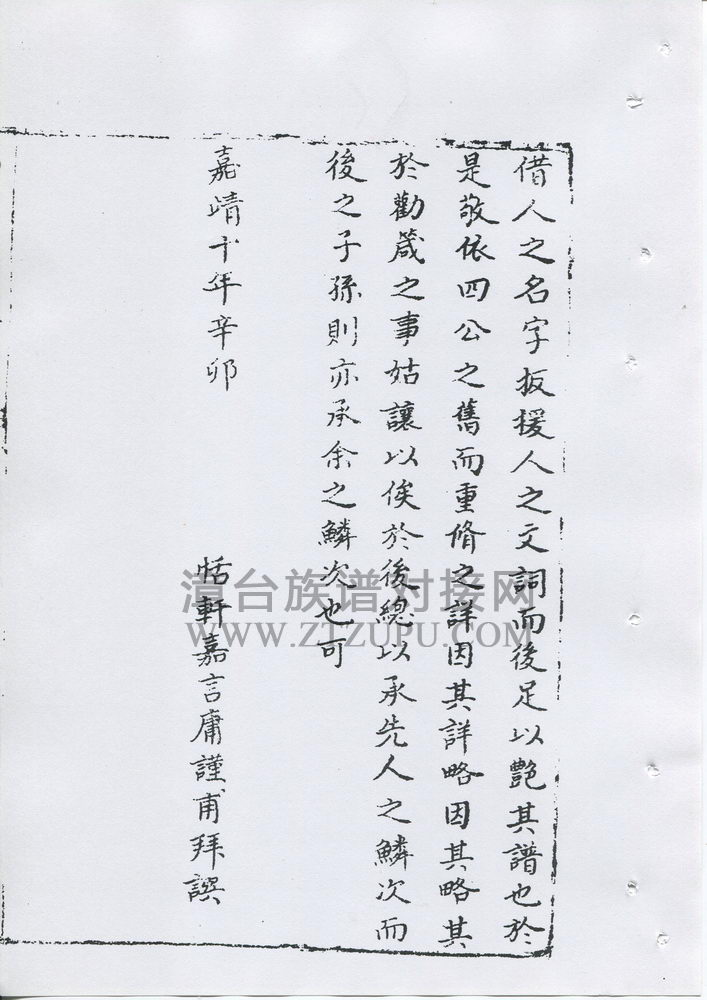 借人之名字扳援人之文詞而後足以艷其譜也於
是敬依四公之舊而重脩之詳因其詳略因其略其
於勸箴之事姑讓以俟於後總以承先人之鱗次而
後之子孫則亦承余之鱗次也可
嘉靖十年辛卯
恬軒嘉言庸謹甫拜譔
漳台族谱对接网
WWW.ZTZUPU.COM